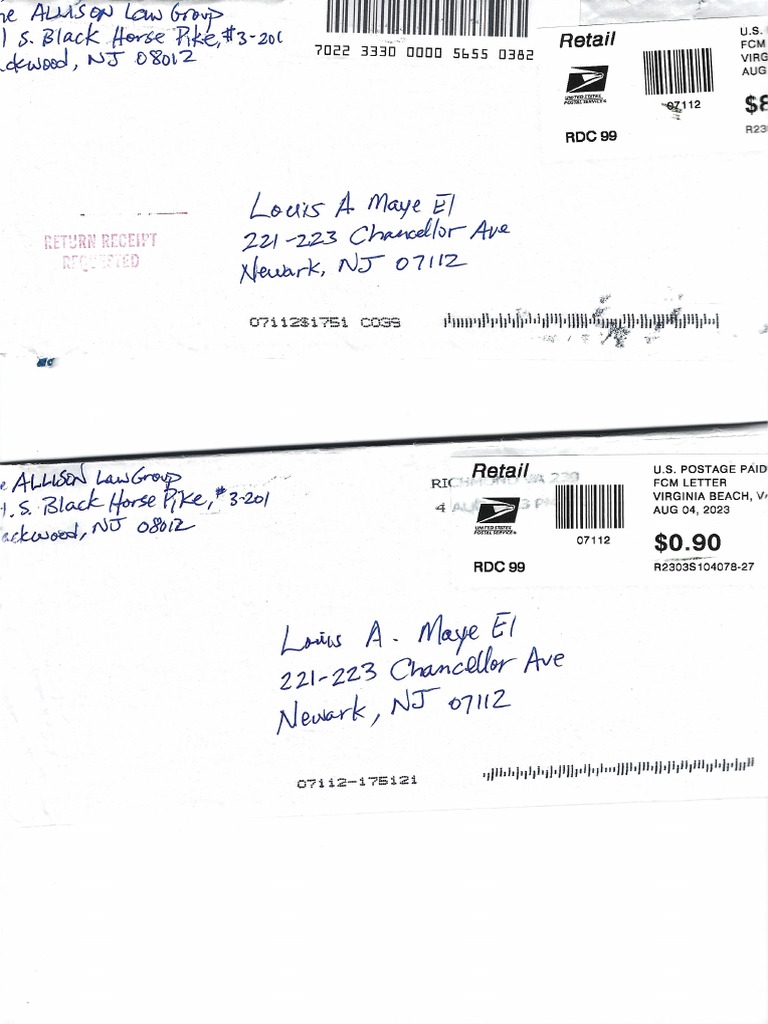 e ALLISON Law Group
1 S. Black Horse Pike, #3-201
ckwood, NJ 08012
7022 3330 0000 5655 0382
Retail
UNITED STATES
POSTAL SERVICE
07112
RDC 99
U.S.
FCM
VIRG
AUG
$8
R23
RETURN RECEIPT
REQUESTED
Louis A Maye El
221-223 Chancellor Ave
Newark, NJ 07112
07112$1751 C039
e ALLISON Law Group
1. S. Black Horse Pike, #3-201
ackwood, NJ 08012
RICHMOND VA 230
4 AUG
3 PM
Retail
UNITED STATES
POSTAL SERVICE
07112
RDC 99
U.S. POSTAGE PAID
FCM LETTER
VIRGINIA BEACH, V
AUG 04, 2023
$0.90
R2303S104078-27
Louis A. Maye El
221-223 Chancellor Ave
Newark, NJ 07112
07112-175121